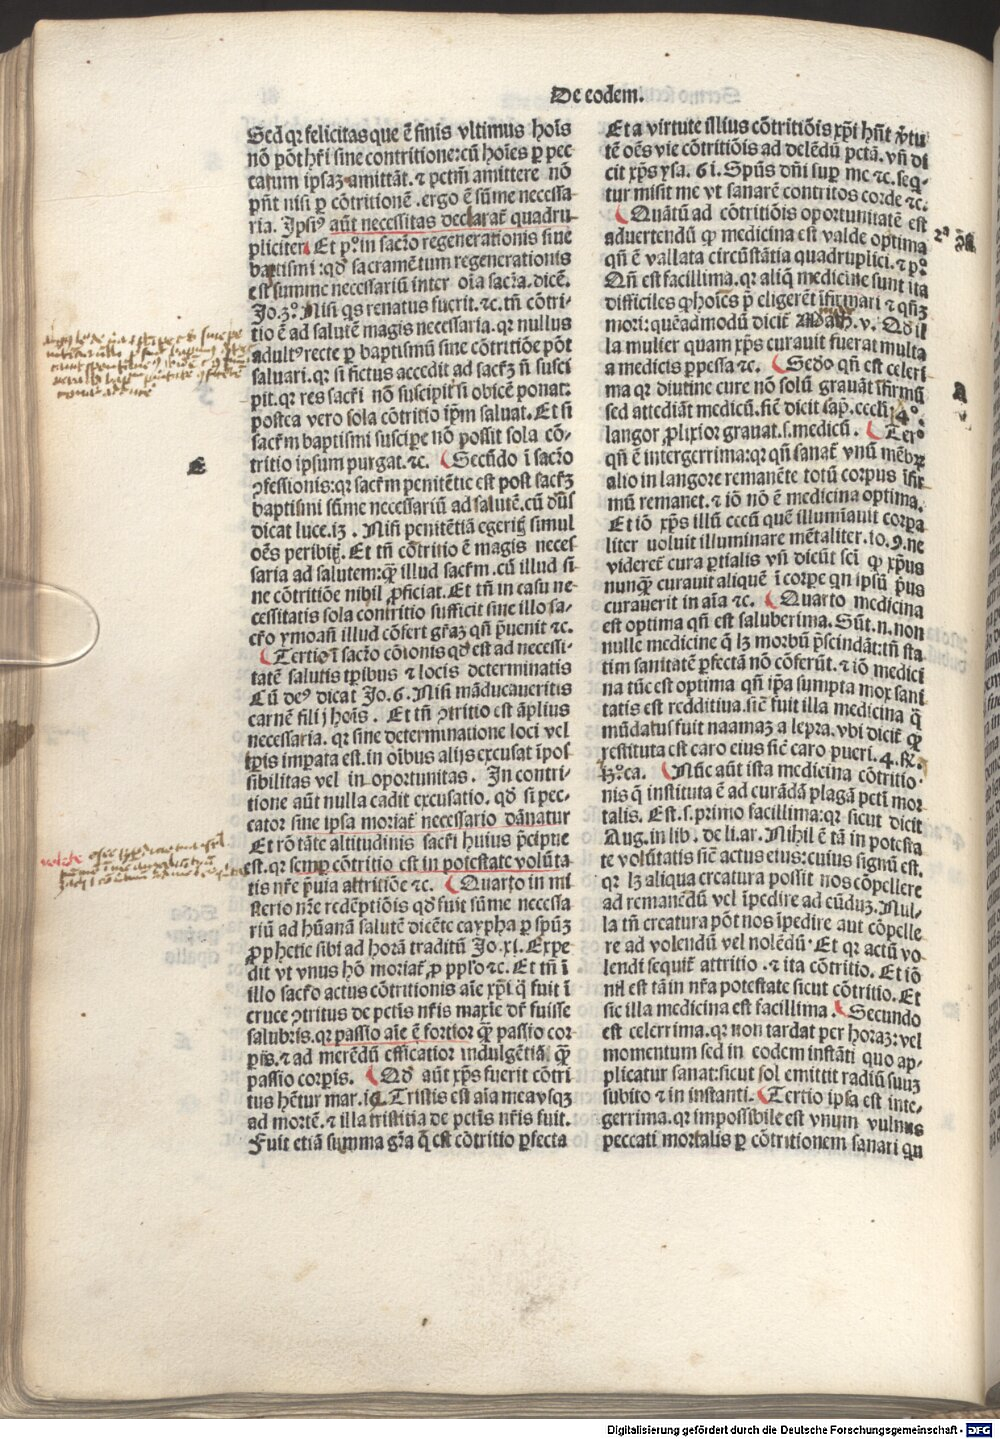 De eodem.
Sed qr felicitas que ē finis vltimus hoīs
nō pōt hr̄i sine contritione: cū hoīes ꝑ pec
catum ipsaꝫ amittāt. ⁊ pctm̄ amittere nō
pn̄t nisi ꝑ cōtritionē. ergo ē sūme necessa
ria. Ipsiꝰ aūt necessitas declaraꞇ̄ quadru
pliciter. Et pº. in sacr̄o regenerationis siue
baptismi: qd̄ sacramētum regenerationis
est summe necessariū inter oīa sacr̄a. dicē.
Jo. 3º. Nisi qs renatus fuerit. ⁊c. tn̄ cōtri-
tio ē ad salutē magis necessaria. qr nullus
adultꝰ recte ꝑ baptismū sine cōtritiōe pōt
saluari. qr si fictus accedit ad sacr̄ꝫ n̄ susci
pit. qr res sacr̄i nō suscipit si obicē ponat.
postea vero sola cōtritio ip̄m saluat. Et si
sacr̄m baptismi suscipe nō possit sola cō-
tritio ipsum purgat. ⁊c. Secūdo ī sacr̄o
ꝯfessionis: qr sacr̄m penitētie est post sacr̄ꝫ
baptismi sūme necessariū ad salutē. cū dūs
dicat luce. 13. Nisi penitētiā egeritꝭ simul
oēs peribitꝭ. Et tn̄ cōtritio ē magis neces-
saria ad salutem: qꝫ illud sacr̄m. cū illud si-
ne cōtritiōe nihil ꝓficiat. Et tn̄ in casu ne-
cessitatis sola contritio sufficit sine illo sa-
cr̄o ymoān̄ illud cōfert gr̄aꝫ qn̄ p̄uenit ⁊c.
Tertio ī sacr̄o cōionis qd̄ est ad necessi-
tatē salutis tꝑibus ⁊ locis determinatis
Cū deꝰ dicat Jo. 6. Nisi māducaueritis
carnē filij hoīs. Et tn̄ ꝯtritio est āplius
necessaria. qr sine determinatione loci vel
tꝑis impata est. in oībus alijs excusat īpos
sibilitas vel in oportunitas. In contri-
tione aūt nulla cadit excusatio. qd̄ si pec-
cator sine ipsa moriaꞇ̄ necessario dānatur
Et rōtāte altitudinis sacr̄i huius p̄cipue
est. qr semꝑ cōtritio est in potestate volūta
tis nr̄e p̄uia attritiōe ⁊c. Quarto in mi
sterio nr̄e redēptiōis qd̄ fuit sūme necessa
riū ad hūanā salutē dicēte caypha ꝑ spūꝫ
ꝓphetie sibi ad horā traditū Jo. xi. Expe
dit vt vnus hō moriaꞇ̄ ꝓ pplo ⁊c. Et tn̄ ī
illo sacr̄o actus cōtritionis aīe xp̄i q̄ fuit ī
cruce ꝯtritus de pctis nr̄is maxīe dꞇ̄ fuisse
salubris. qr passio aīe ē fortior qꝫ passio cor
ꝑis. ⁊ ad merēdū efficatior indulgētiā qꝫ
passio corꝑis. Qd̄ aūt xp̄s fuerit cōtri
tus hētur mar. 14. Tristis est aīa mea vsqꝫ
ad mortē. ⁊ illa tristitia de pctis nr̄is fuit.
Fuit etiā summa gr̄a q̄ est cōtritio ꝑfecta
Et a virtute illius cōtritiōis xp̄i hn̄t v̄tu
tē oēs vie cōtritiōis ad delēdū pctā. vn̄ di
cit xp̄s ysa. 61. Spūs dn̄i suꝑ me ⁊c. seq-
tur misit me vt sanarē contritos corde ⁊c.
Quātū ad cōtritiōis oportunitatē est
aduertendū qꝫ medicina est valde optima
qn̄ ē vallata circūstātia quadruplici. ⁊ pº.
Qn̄ est facillima. qr aliq̄ medicine sunt ita
difficiles ꝙ hoīes p̄ eligerēt īfirmari ⁊ qn̄qꝫ
mori: quēadmodū diciꞇ̄ Math. v. Qd̄ il
la mulier quam xp̄s curauit fuerat multa
a medicis ꝑpessa ⁊c. Sedo qn̄ est celeri
ma qr diutine cure nō solū grauāt īfirmū
sed attediāt medicū. sic̄ dicit sap̄. eccli 14º.
langor ꝓlixior grauat. s. medicū. Terº
qn̄ ē intergerrima: qr qn̄ sanaꞇ̄ vnū mēbꝝ
alio in langore remanēte totū corpus īfir
mū remanet. ⁊ iō nō ē medicina optima.
Et iō xp̄s illū cecū quē illumīauit corpa
liter voluit illuminare mētaliter. io. 9. ne
videreꞇ̄ cura ꝑtialis vn̄ dicūt sci̅ qꝫ xp̄us
nunqꝫ curauit aliquē ī corpe qn ipsū p̄us
curauerit in aīa ⁊c. Quarto medicina
est optima qn̄ est saluberima. Sūt. n. non
nulle medicine q̄ lꝫ morbū p̄scindāt: tn̄ sta
tim sanitatē ꝑfectā nō cōferūt. ⁊ iō medici
na tūc est optima qn̄ ip̄a sumpta mox sani
tatis est redditiua. sic̄ fuit illa medicina q̄
mūdatus fuit naamaꝫ a lepra. vbi diciꞇ̄ qꝫ
restituta est caro eius sic̄ caro pueri. 4. R̄.
ca. Nūc aūt ista medicina cōtritio-
nis q̄ instituta ē ad curādā plagā pcti mor
talis. Est. s. primo facillima: qr sicut dicit
Aug. in lib. de li. ar. Nihil ē tā in potesta
te volūtatis sic̄ actus eius: cuius signū est.
qr lꝫ aliqua creatura possit nos cōpellere
ad remanēdū vel īpedire ad cūdūꝫ. Nul-
la tn̄ creatura pōt nos īpedire aut cōpelle
re ad volendū vel nolēdū. Et qr actū vo-
lendi sequiꞇ̄ attritio. ⁊ ita cōtritio. Et iō
nil est tā in nr̄a potestate sicut cōtritio. Et
sic illa medicina est facillima. Secundo
est celerrima. qr non tardat per horaꝫ: vel
momentum sed in eodem instāti quo ap-
plicatur sanat: sicut sol emittit radiū suuꝫ
subito ⁊ in instanti. Tertio ipsa est inte-
gerrima. qr impossibile est vnum vulnus
peccati mortalis ꝑ cōtritionem sanari qn
Digitalisierung gefördert durch die Deutsche Forschungsgemeinschaft - DFG